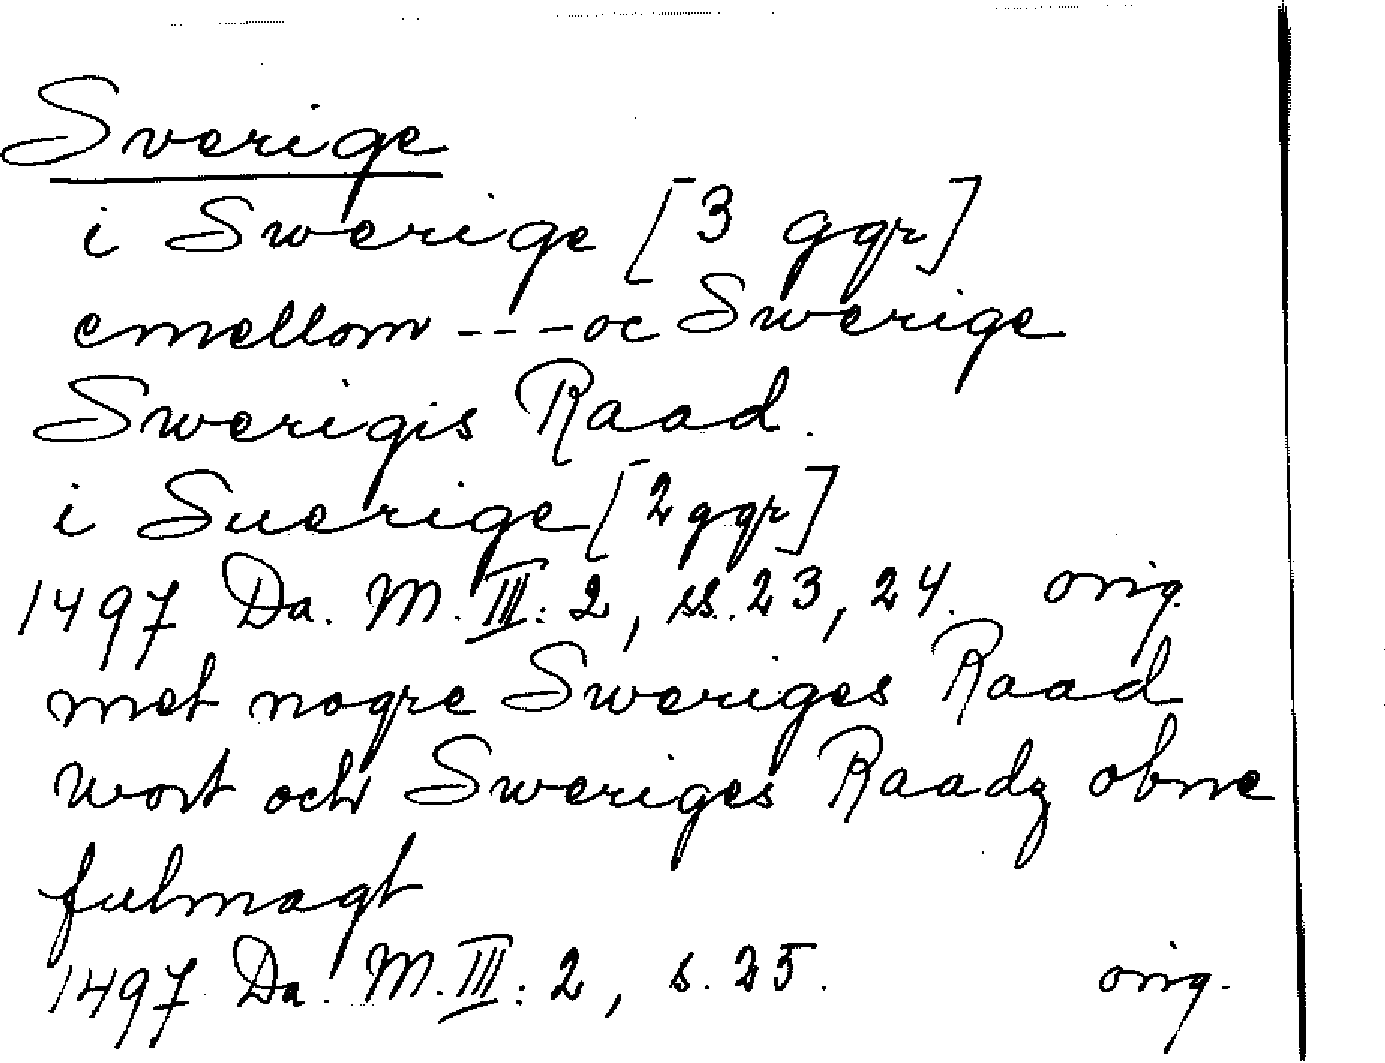 Sverige
i Swerige [3 ggr]
emellom - - - oc Swerige
Swerigis Raad.
i Suerige [2 ggr]
1497 Da. M. III: 2, ss. 23, 24. orig.
met nogre Sweriges Raad
wort och Sweriges Raadz obne
fulmagt
1497 Da. M. III: 2, s. 25. orig.